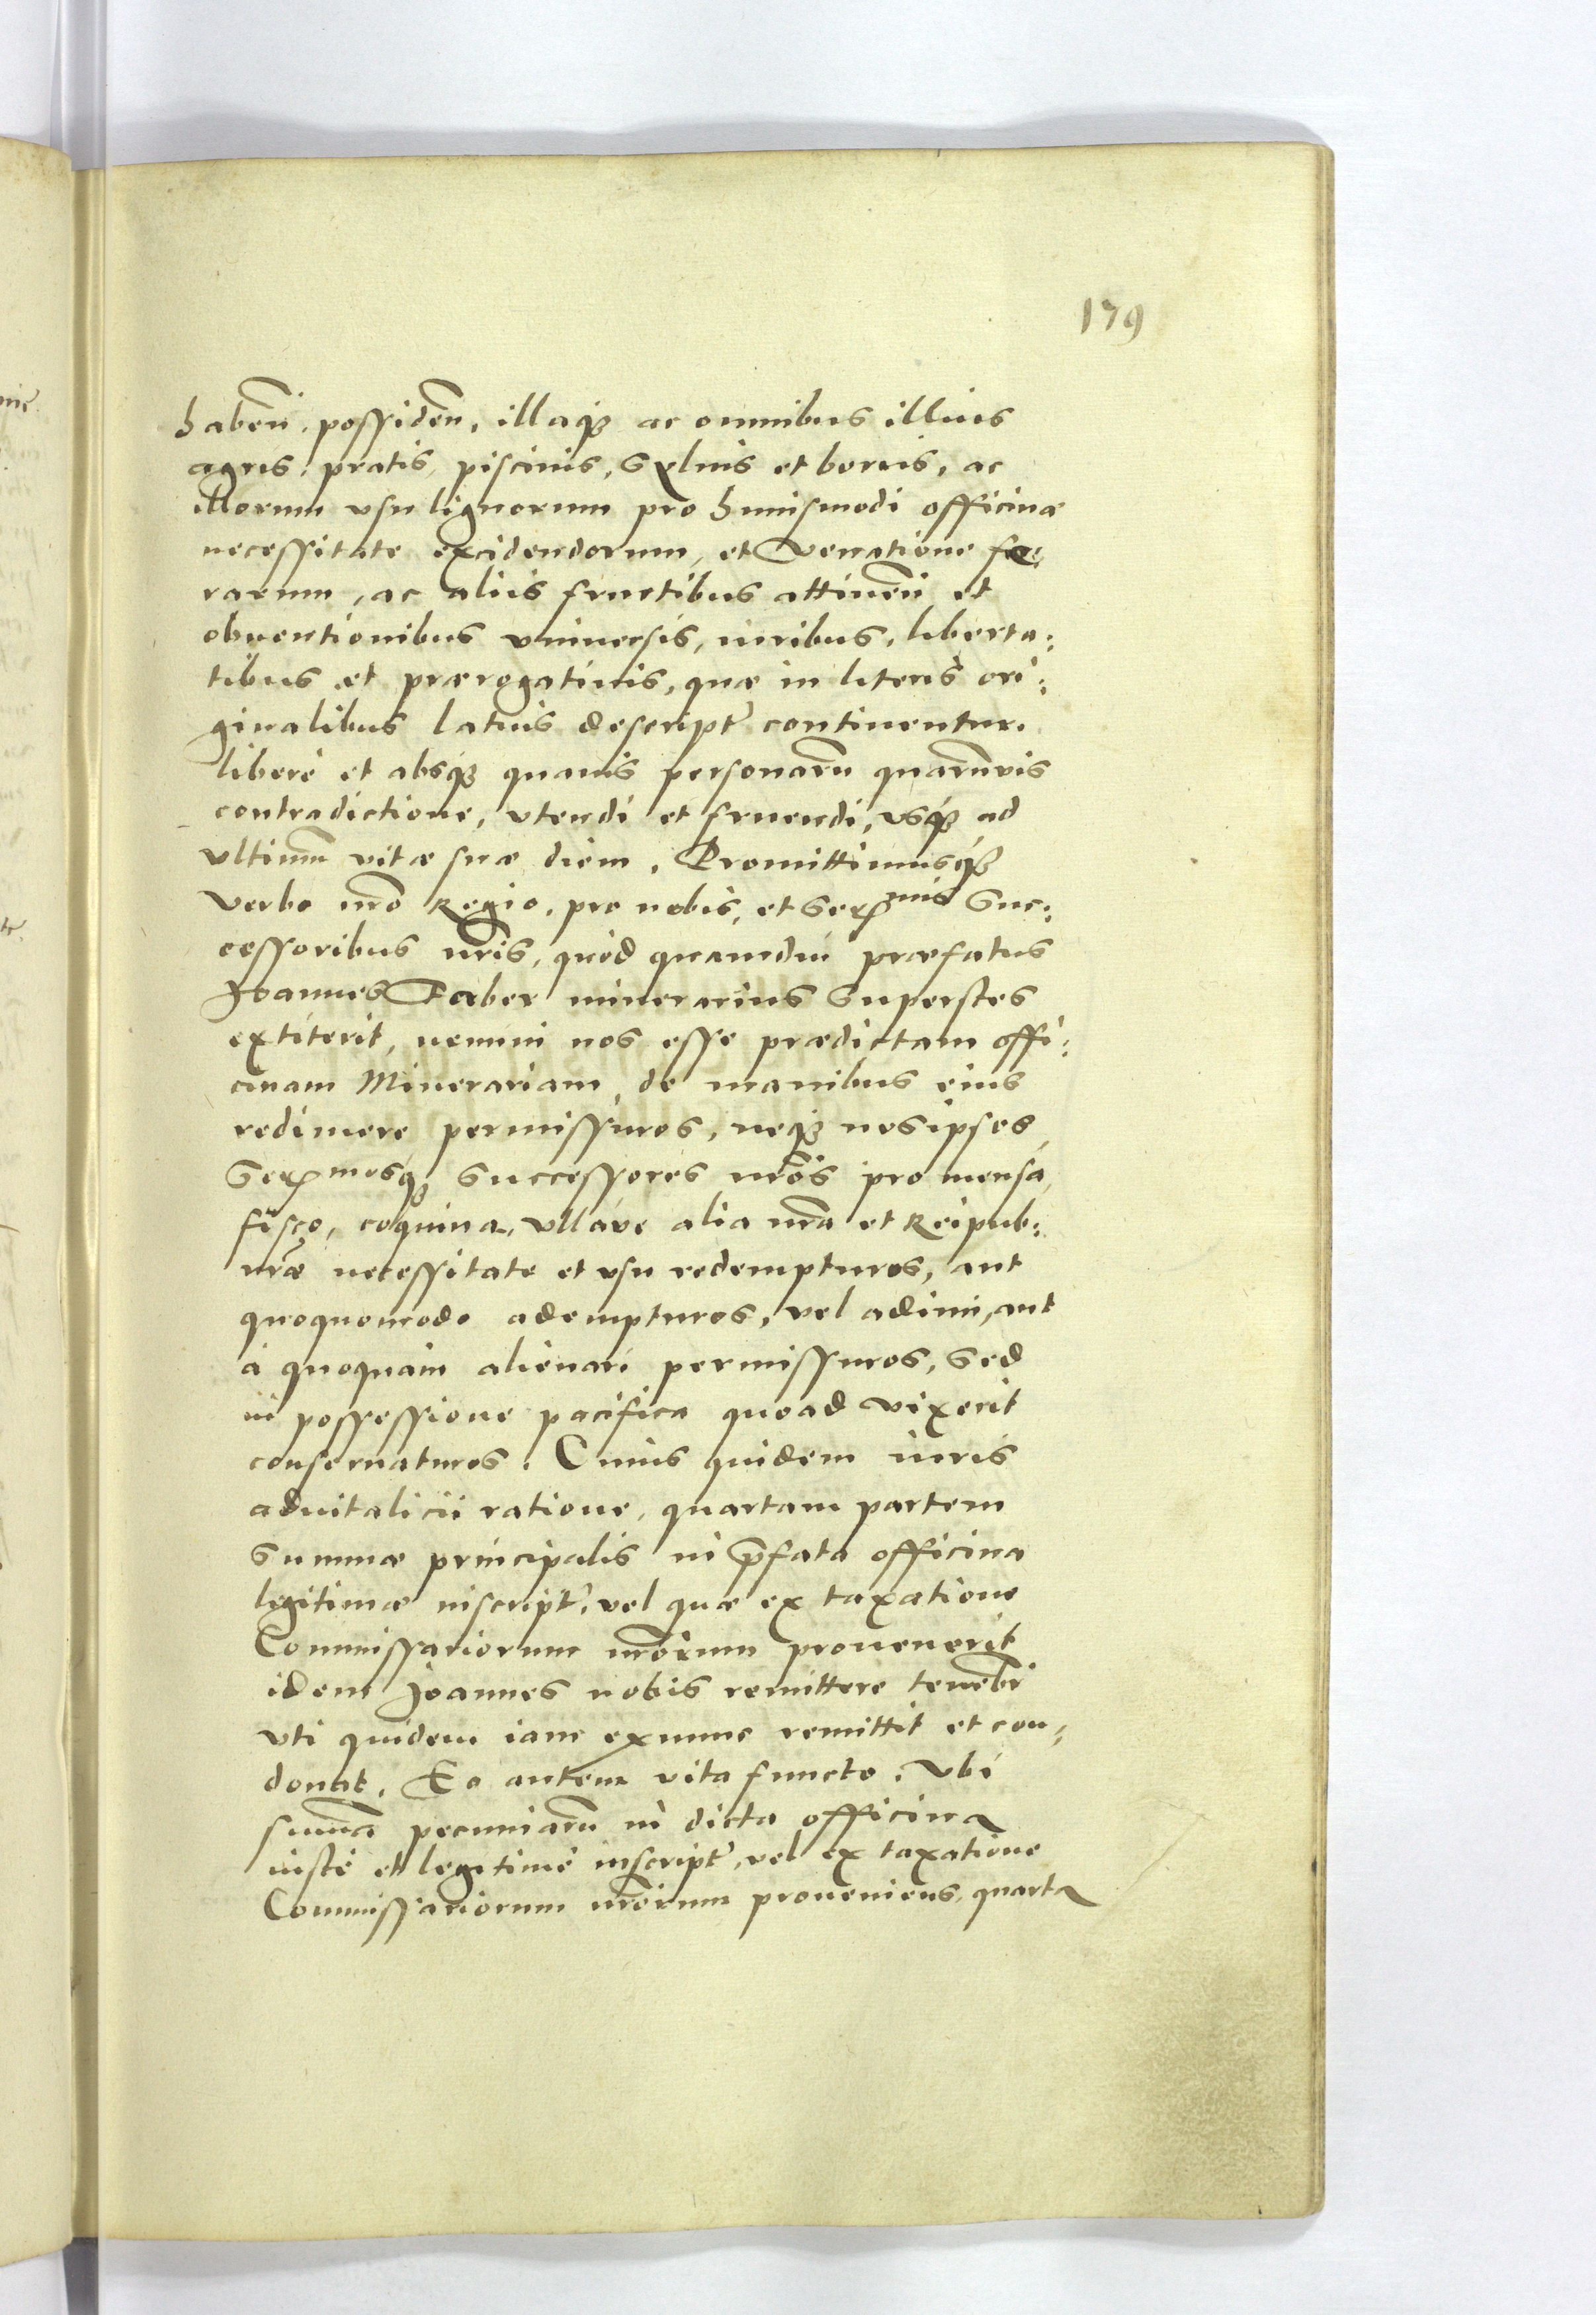 179
habeñ, possideñ, illaqꝫ ac omnibus illius
agris, pratis, piscinis, syluis et borris, ac
illorum vsu lignorum pro huiusmodi officinæ
necessitate excidendorum, et venatione fe:
rarum, ac aliis fructibus attineñ et
obuentionibus vniuersis, iuribus, liberta:
tibus et prærogatiuis, quæ in literis ori:
ginalibus latius descript continentur.
liberè et absqꝫ quauis personarũ quarũvis
contradictione, vtendi et fruendi, vsqꝫ ad
vltimũ vitæ suæ diem. Promittimusqꝫ
verbo nr̃o Regio, pro nobis, et Ser^mis Suc:
cessoribus nr̃is, quòd quamdiu præfatus
Joannes Faber minerarius superstes
extiterit, nemini nos esse prædictam offi:
cinam Minerariam, de manibus eius
redimere permissuros, neqꝫ nos ipsos
Ser^mosqꝫ successores nr̃os pro mensa,
fisco, coquina, vllave alia nr̃a et Reipub:
nr̃æ necessitate et vsu redempturos, aut
quoquomodo adempturos, vel adimi, aut
à quoquam alienari permissuros, sed
in possessione pacifica quoad vixerit
conseruaturos. Cuius quidem iuris
aduitalicii ratione, quartam partem
summæ principalis in p̃fata officina
legitimæ inscript, vel quæ ex taxatione
Commissariorum nr̃orum prouenerit
idem Joannes nobis remittere tenebr
vti quidem iam exnunc remittit et con:
donat. Eo autem vita functo. Vbi
sum̃a pecuniarũ in dicta officina
iustè et legitimè inscript, vel ex taxatione
Commissariorum nr̃orum proueniens, quarta